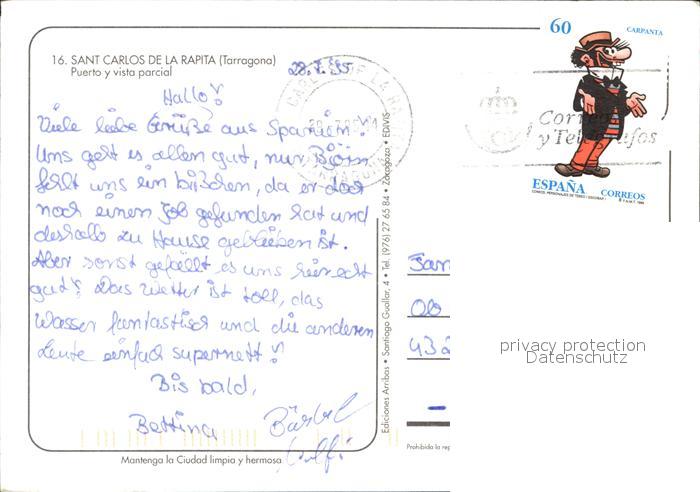 16. SANT CARLOS DE LA RAPITA (Tarragona)
Puerto y vista parcial
28.7.95
Hallo!
Viele liebe Grüße aus Spanien!
Uns geht es allen gut, nur Björn
fehlt uns ein bißchen, da er doch
noch einen Job gefunden hat und
deshalb zu Hause geblieben ist.
Aber sonst gefällt es uns hier echt
gut! Das Wetter ist toll, das
Wasser fantastisch und die anderen
Leute einfach supernett!
Bis bald,
Bettina Bärbel
Mantenga la Ciudad limpia y hermosa
Ediciones Arribas • Santiago Guallar, 4 • Tel. (976) 27 65 84 • Zaragoza • EDAVIS
60
CARPANTA
Correos
y Telégrafos
ESPAÑA
CORREOS
Fam
Ob
432
Prohibida la rep
privacy protection
Datenschutz